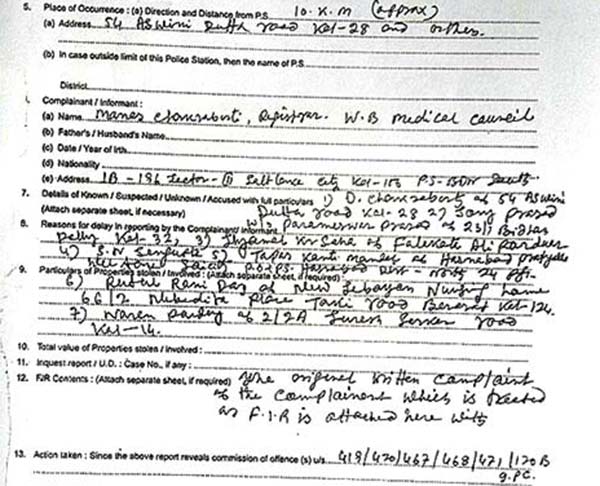 5. Place of Occurrence : (a) Direction and Distance from P.S. 10. K.M (approx)
(a) Address 54 Aswini Dutta road Kol-28 and others.
(b) In case outside limit of this Police Station, then the name of P.S
District
Complainant / Informant :
(a) Name Manas Chakraborti, Registrar. W.B medical council
(b) Father's / Husband's Name
(c) Date / Year of Irth
(d) Nationality
(e) Address IB - 196 Sector - III Salt Lake City Kol- PS-BDN South
7. Details of Known / Suspected / Unknown / Accused with full particulars 1) D. Chakraborti of 54 Aswini
(Attach separate sheet, if necessary) Dutta road Kol-28 2)
8. Reasons for delay in reporting by the Complainant / Informant Parameswar Prasad of 23/1
Kol-32, 3) Shyamal Kr Saha of Falakata Alipurduar
4) S.N Sengupta 5) Tapas Kanti Mandal of Hasnabad
9. Particulars of Properties stolen / involved : (Attach separate sheet, if required) : P.O & P.S. Hasnabad Dist - North 24
6) Rani Das of New Nursing home
66/2 Nibedita Place Taki road Barasat Kol-124.
7) Naren Pandey of 2/2A Suresh Sarkar road
Kol-14.
10. Total value of Properties stolen / involved :
11. Inquest report / U.D. : Case No., if any :
12. FIR Contents : (Attach separate sheet, if required) The original written complaint
of the complainant which is treated
as F.I.R is attached here with
13. Action taken : Since the above report reveals commission of offence (s) u/s 419/420/467/468/471/120B
IPC.